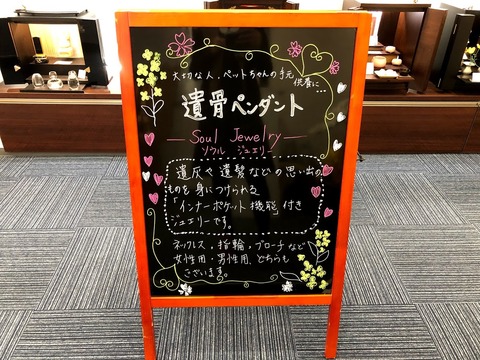 大切な人、ペットちゃんの手元
供養に…
遺骨ペンダント
— Soul Jewelry —
ソウル ジュエリー
遺灰や遺髪などの思い出の
ものを身につけられる
「インナーポケット機能」付き
ジュエリーです。
ネックレス、指輪、ブローチなど
女性用・男性用、どちらも
ございます。